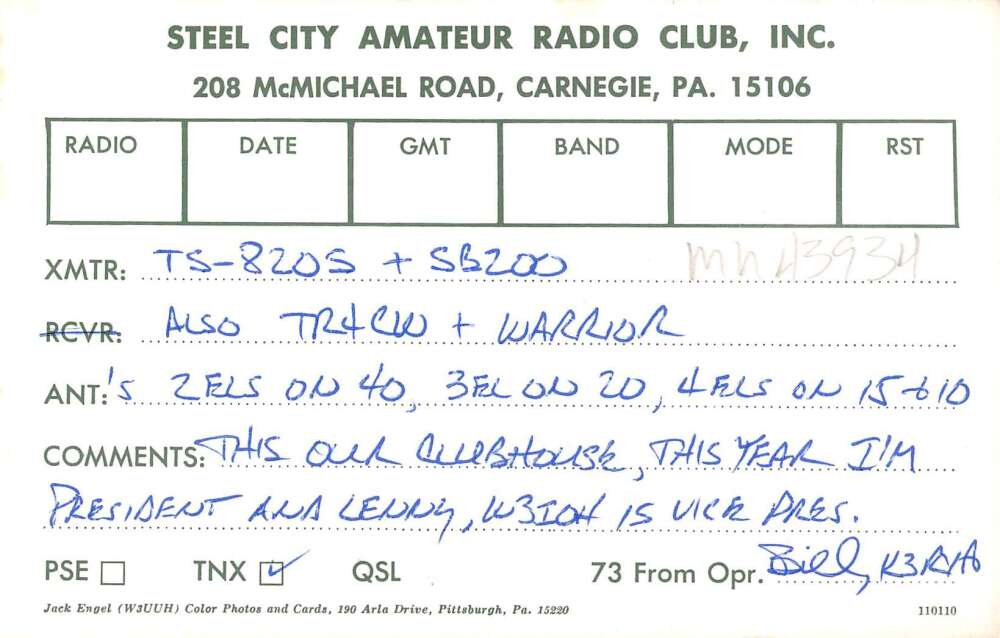 STEEL CITY AMATEUR RADIO CLUB, INC.
208 McMICHAEL ROAD, CARNEGIE, PA. 15106
RADIO DATE GMT BAND MODE RST
XMTR: TS-820S + SB200 mh43934
RCVR: ALSO TR4CW + WARRIOR
ANT:'S 2 ELS ON 40, 3 EL ON 20, 4 ELS ON 15 + 10
COMMENTS: THIS OUR CLUBHOUSE, THIS YEAR I'M
PRESIDENT AND LENNY, W3IOH IS VICE PRES.
PSE TNX QSL 73 From Opr. Bill,
Jack Engel (W3UUH) Color Photos and Cards, 190 Arla Drive, Pittsburgh, Pa. 15220 110110